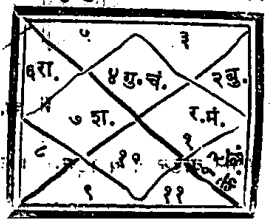 ५ ३
६रा. ४ गु. चं. २बु.
७ श. र. मं.
१
८ १०
९ ११